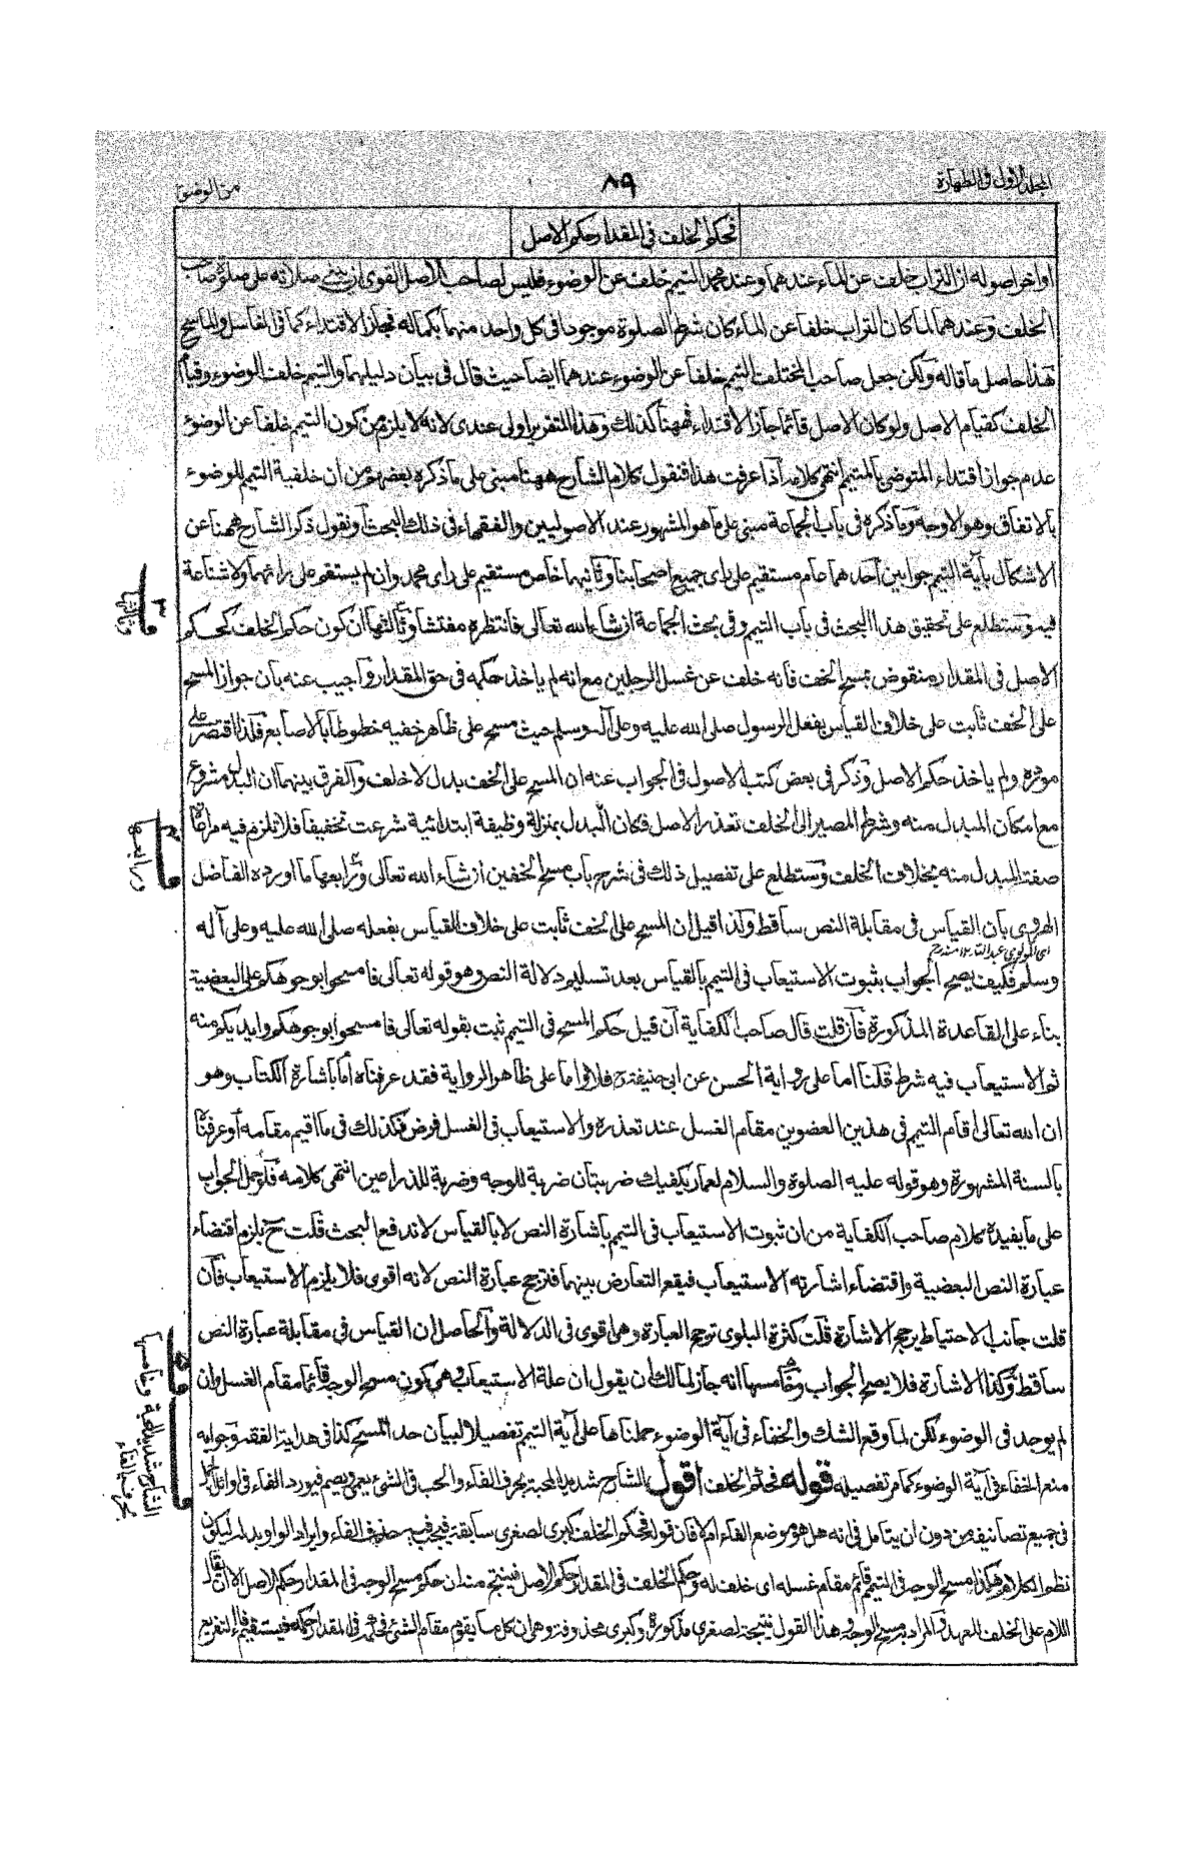 المجلد الاول فى الطهارة
٨٩
من الوضوء
فحكم الخلف فى المقدار حكم الاصل
او اخر اصوله ان التراب خلف عن الماء عندهما وعند محمد التيمم خلف عن الوضوء فليس لصاحب الاصل القوى ان يبنى صلاته على صلوة صاحب
الخلف وعندهما لما كان التراب خلفا عن الماء كان شرط الصلوة موجودا فى كل واحد منهما بكماله فجاز الاقتداء كما فى الغاسل والماسح
هذا حاصل ما قاله ولكن جعل صاحب المختلف التيمم خلفا عن الوضوء عندهما ايضا حيث قال فى بيان دليلهما والتيمم خلف الوضوء وقيام
الخلف كقيام الاصل ولو كان الاصل قائما جاز الاقتداء فههنا كذلك وهذا التقرير اولى عندى لانه لا يلزم من كون التيمم خلفا عن الوضوء
عدم جواز اقتداء المتوضى بالمتيمم انتهى كلامه اذا عرفت هذا فنقول كلام الشارح ههنا مبنى على ما ذكره بعضهم من ان خلفية التيمم للوضوء
بالاتفاق وهو الاوجه وما ذكره فى باب الجماعة مبنى على ما هو المشهور عند الاصوليين والفقهاء فى ذلك البحث او نقول ذكر الشارح ههنا عن
الاشكال بآية التيمم جوابين احدهما عام مستقيم على راى جميع اصحابنا وثانيهما خاص مستقيم على راى محمد وان لم يستقم على رائهما ولا شناعة
فيه وستطلع على تحقيق هذا البحث فى باب التيمم وفى بحث الجماعة ان شاء الله تعالى فانتظره مفتشا وثالثها ان كون حكم الخلف كحكم
الاصل فى المقدار منقوض بمسح الخف فانه خلف عن غسل الرجلين مع انه لم ياخذ حكمه فى حق المقدار واجيب عنه بان جواز المسح
على الخف ثابت على خلاف القياس بفعل الرسول صلى الله عليه وعلى آله وسلم حيث مسح على ظاهر خفيه خطوطا بالاصابع فلذا اقتصر على
مورده ولم ياخذ حكم الاصل وذكر فى بعض كتب الاصول فى الجواب عنه ان المسح على الخف بدل لا خلف والفرق بينهما ان البدل مشروع
مع امكان المبدل منه وشرط المصير الى الخلف تعذر الاصل فكان البدل بمنزلة وظيفة ابتدائية شرعت تخفيفا فلا تلزم فيه مراعاة
صفة المبدل منه بخلاف الخلف وستطلع على تفصيل ذلك فى شرح باب مسح الخفين ان شاء الله تعالى ورابعها ما اورده الفاضل
الهروى بان القياس فى مقابلة النص ساقط ولذا قيل ان المسح على الخف ثابت على خلاف القياس بفعله صلى الله عليه وعلى آله
وسلم فكيف يصح الجواب بثبوت الاستيعاب فى التيمم بالقياس بعد تسليم دلالة النص وهو قوله تعالى فامسحوا بوجوهكم على البعضية
بناء على القاعدة المذكورة فان قلت قال صاحب الكفاية ان قيل حكم المسح فى التيمم ثبت بقوله تعالى فامسحوا بوجوهكم وايديكم منه
ثم الاستيعاب فيه شرط قلنا اما على رواية الحسن عن ابى حنيفة رح فلا واما على ظاهر الرواية فقد عرفناه اما باشارة الكتاب وهو
ان الله تعالى اقام التيمم فى هذين العضوين مقام الغسل عند تعذره والاستيعاب فى الغسل فرض فكذلك فى ما اقيم مقامه او عرفناه
بالسنة المشهورة وهو قوله عليه الصلوة والسلام لعمار يكفيك ضربتان ضربة للوجه وضربة للذراعين انتهى كلامه فلو حمل الجواب
على ما يفيده كلام صاحب الكفاية من ان ثبوت الاستيعاب فى التيمم باشارة النص لا بالقياس لاندفع البحث قلت ح يلزم اقتضاء
عبارة النص البعضية واقتضاء اشارته الاستيعاب فيقع التعارض بينهما فترجح عبارة النص لانه اقوى فلا يلزم الاستيعاب فان
قلت جانب الاحتياط يرجح الاشارة قلت كثرة البلوى ترجح العبارة وهى اقوى فى الدلالة والحاصل ان القياس فى مقابلة عبارة النص
ساقط وكذا الاشارة فلا يصح الجواب وخامسها انه جاز لمالك ان يقول ان علة الاستيعاب وهى كون مسح الوجه قائما مقام الغسل وان
لم يوجد فى الوضوء لكن لما وقع الشك والخفاء فى آية الوضوء حملناها على آية التيمم تفصيلا لبيان حد المسح كذا فى هداية الفقه وجوابه
منع الخفاء فى آية الوضوء كما مر تفصيله قوله فحكم الخلف اقول الشارح شديد المحبة بحرف الفاء والحب فى الشئ يعمى ويصم فيورد الفاء فى اوائل الجمل
فى جميع تصانيفه من دون ان يتامل فى انه هل هو موضع الفاء ام لا فان قوله فحكم الخلف كبرى لصغرى سابقة فيجب حذف الفاء وايراد الواو بدله ليكون
نظم الكلام هكذا مسح الوجه فى التيمم قائم مقام غسله اى خلف له وحكم الخلف فى المقدار حكم الاصل فينتج منه ان حكم مسح الوجه فى المقدار حكم الاصل الا ان يقال
اللام على الخلف للعهد والمراد به مسح الوجه وهذا القول نتيجة لصغرى مذكورة وكبرى محذوفة وهى ان كل ما يقوم مقام الشئ فحكمه فى المقدار حكمه فيستقيم الفاء للتفريع
وثالثها
ورابعها
وخامسها
الشارح شديد المحبة بحرف الفاء